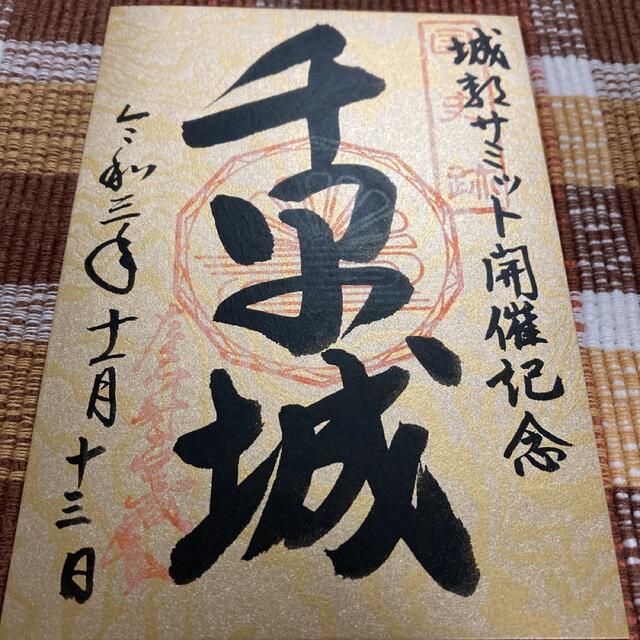 国史跡
城郭サミット開催記念
千早城
令和三年十一月十三日